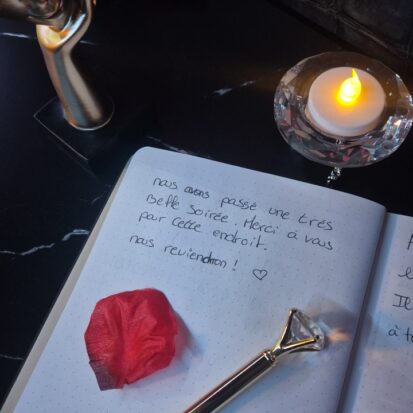 nous avons passé une très
Belle soirée. Merci à vous
pour cette endroit.
nous reviendron !
Il
à t